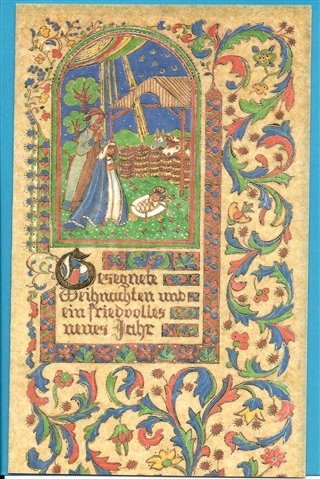 Gesegnete
Weihnachten und
ein friedvolles
neues Jahr